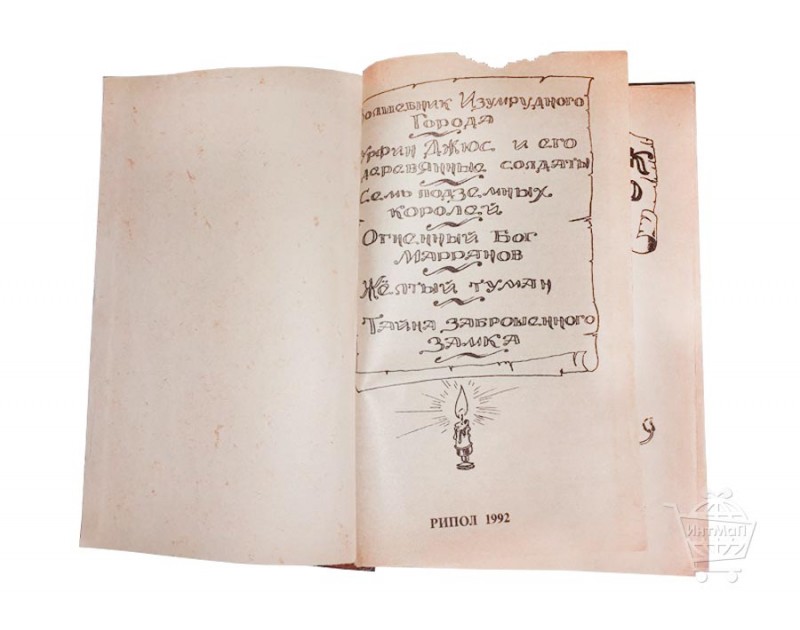 Волшебник Изумрудного
Города
Урфин Джюс и его
деревянные солдаты
Семь подземных
королей
Огненный Бог
Марранов
Жёлтый туман
Тайна заброшенного
замка
РИПОЛ 1992
ИнтМаП